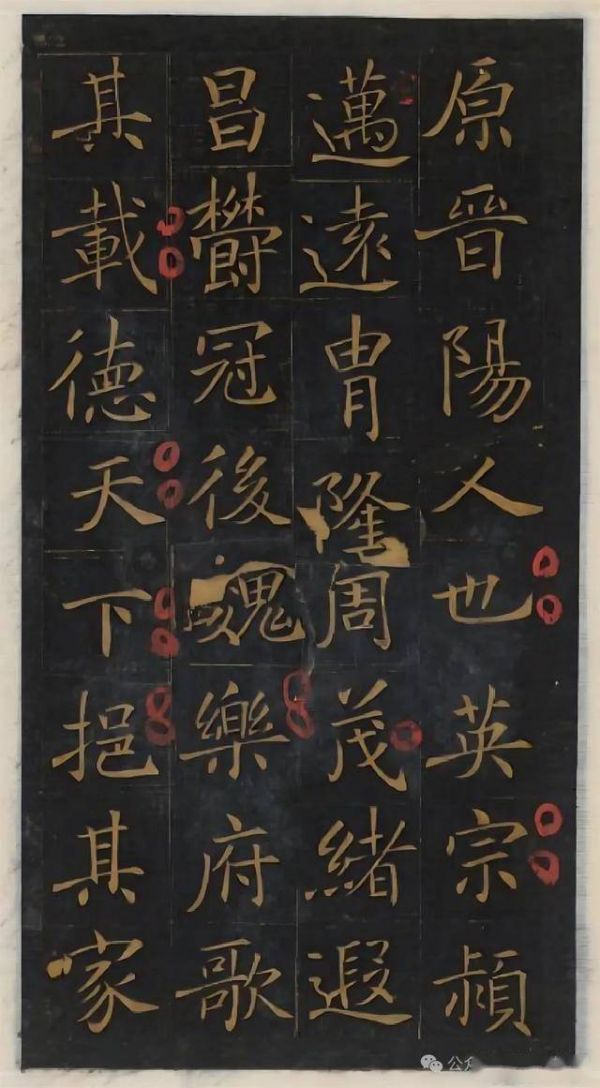 原晉陽人也英宗頴
邁遠胄隆周茂緒遐
昌欝冠後魏樂府歌
其載德天下挹其家
公众